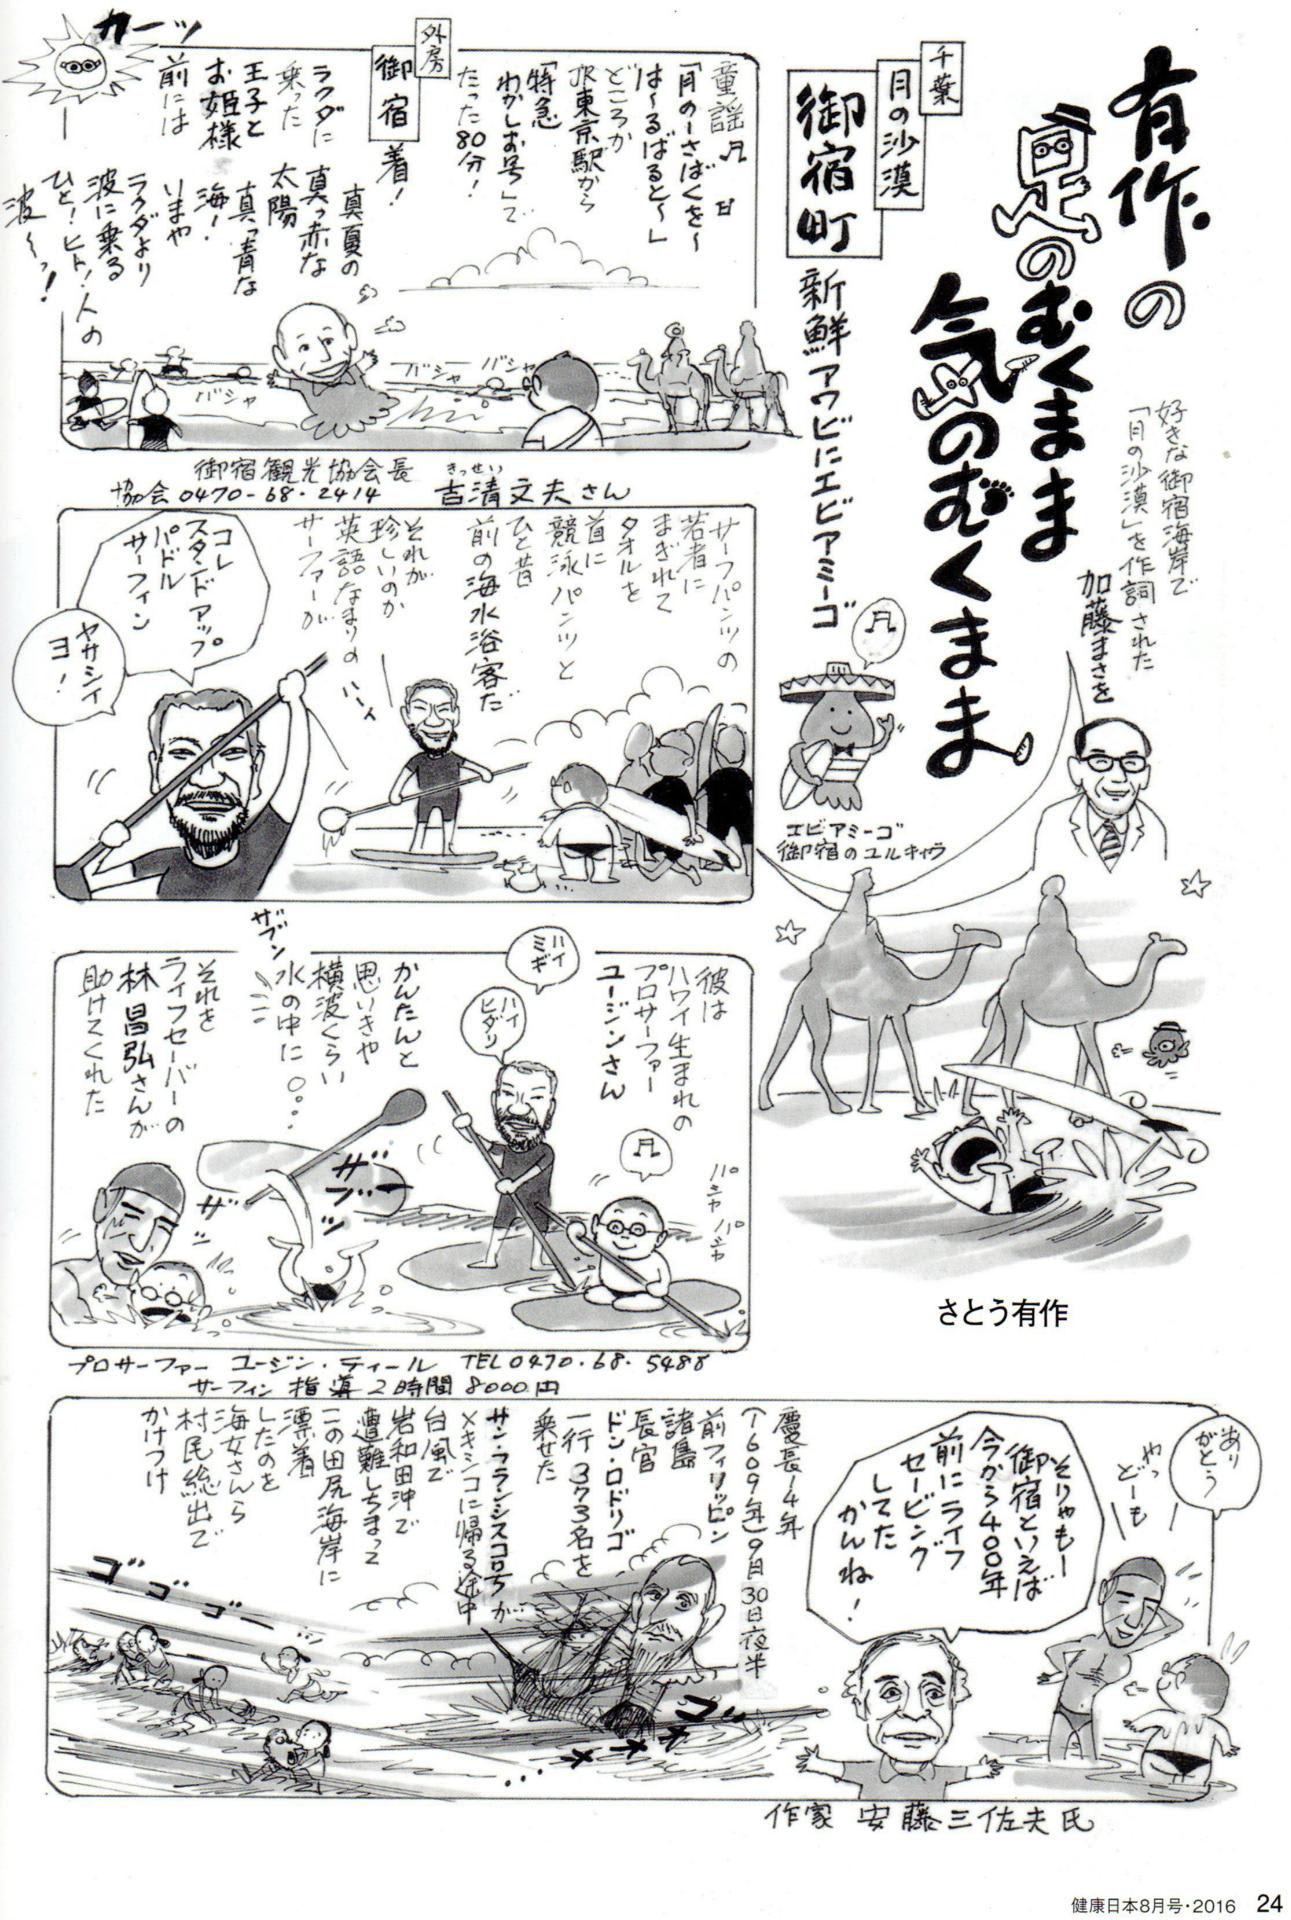 有作の
足のむくまま
気のむくまま
千葉
月の沙漠
御宿町
新鮮アワビにエビアミーゴ
好きな御宿海岸で
「月の沙漠」を作詞された
加藤まさを
エビアミーゴ
御宿のユルキャラ
さとう有作
童謡
「月のーさばくを〜
は〜るばると〜」
どころか
JR東京駅から
「特急
わかしお号」で
たった80分!
外房
御宿
着!
カーッ
真夏の
真っ赤な
太陽
真っ青な
海!
いまや
ラクダより
波に乗る
ひと!ヒト!人の
波〜っ!
前には
王子と
お姫様
ラクダに
乗った
バシャ
バシャ
バシャ
御宿観光協会長
きっせい
吉清文夫さん
協会0470-68-2414
サーフパンツの
若者に
まぎれて
タオルを
首に
競泳パンツと
ひと昔
前の海水浴客だ
それが
珍しいのか
英語なまりの
サーファーが
ハーイ
コレ
スタンドアップ
パドル
サーフィン
ヤサシイ
ヨ!
彼は
ハワイ生まれの
プロサーファー
ユージンさん
ハイ
ミギ
ハイ
ヒダリ
パシャ
パシャ
かんたんと
思いきや
横波くらい
水の中に○…
ザブン
それを
ライフセーバーの
林昌弘さんが
助けてくれた
プロサーファー ユージン・ティール TEL0470・68・5488
サーフィン指導2時間8000円
ありがとう
やっ
どーも
そりゃもー
御宿といえば
今から400年
前にライフ
セービング
してた
かんね!
慶長14年
(1609年)9月30日夜半
前フィリッピン
諸島
長官
ドン・ロドリゴ
一行373名を
乗せた
サン・フランシスコ号が
メキシコに帰る途中
台風で
岩和田沖で
遭難しちまって
この田尻海岸に
漂着
したのを
海女さんら
村民総出で
かけつけ
ゴゴゴー
作家 安藤三佐夫氏
健康日本8月号・2016 24